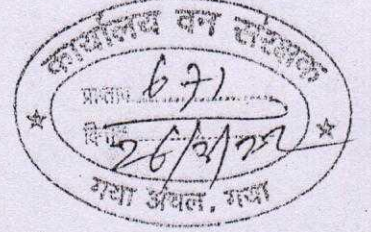 कार्यालय वन संरक्षक
प्राप्तांक 671
दिनांक 26/3/22
गया अंचल, गया